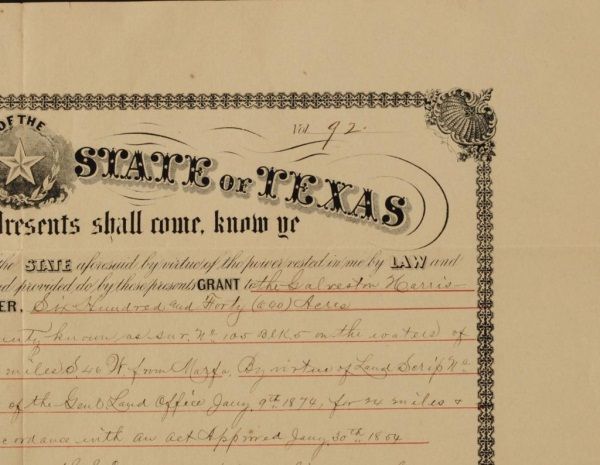 OF THE
Vol 92.
STATE OF TEXAS
Presents shall come, know ye
the STATE aforesaid by virtue of the power vested in me by LAW and
d provided do by these presents GRANT to the Galveston Harris-
ER, Six Hundred and Forty (640) Acres
unty known as Sur. No 105 Blk 5 on the waters of
miles S 46 W from Marfa, By virtue of Land Scrip No
of the Genl Land Office Jany 9th 1874, for 24 miles &
ccordance with an act Approved Jany 30th 1854